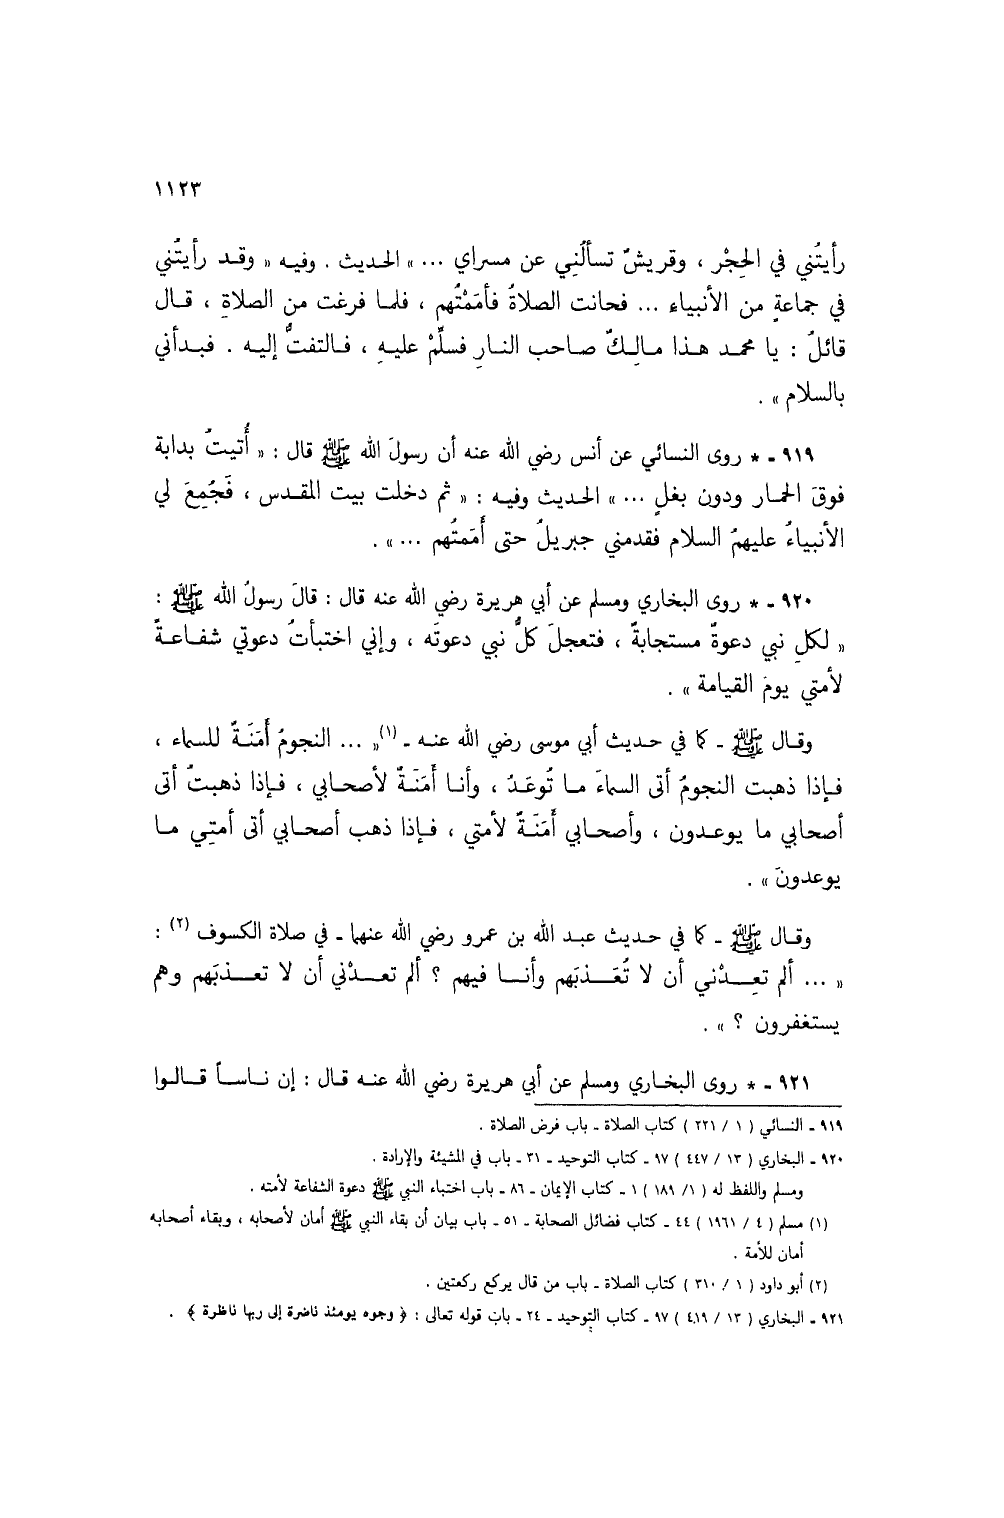 ١١٢٣
رأيتُني في الحِجْر ، وقريشٌ تسألُني عن مسراي ... » الحديث . وفيه « وقد رأيتُني
في جماعةٍ من الأنبياء ... فحانت الصلاةُ فأمَمْتُهم ، فلما فرغت من الصلاةِ ، قال
قائلٌ : يا محمد هذا مالِكٌ صاحب النارِ فسلِّمْ عليهِ ، فالتفتُّ إليه . فبدأني
بالسلام » .
٩١٩ ـ * روى النسائي عن أنس رضي الله عنه أن رسولَ الله ﷺ قال : « أُتيتُ بدابة
فوقَ الحمار ودون بغلٍ ... » الحديث وفيه : « ثم دخلت بيت المقدس ، فَجُمِعَ لي
الأنبياءُ عليهمُ السلام فقدمني جبريلُ حتى أَممتُهم ... » .
٩٢٠ ـ * روى البخاري ومسلم عن أبي هريرة رضي الله عنه قال : قالَ رسولُ الله ﷺ :
« لكلِ نبي دعوةٌ مستجابةٌ ، فتعجلَ كلُّ نبي دعوتَه ، وإني اختبأتُ دعوتي شفاعةً
لأمتي يومَ القيامة » .
وقال ﷺ ـ كما في حديث أبي موسى رضي الله عنه ـ (١)« ... النجومُ أَمَنَةٌ للسماء ،
فإذا ذهبت النجومُ أتى السماءَ ما تُوعَدُ ، وأنا أَمَنَةٌ لأصحابي ، فإذا ذهبتُ أتى
أصحابي ما يوعدون ، وأصحابي أَمَنَةٌ لأمتي ، فإذا ذهب أصحابي أتى أمتِي ما
يوعدونَ » .
وقال ﷺ ـ كما في حديث عبد الله بن عمرو رضي الله عنهما ـ في صلاة الكسوف (٢) :
« ... ألم تعِدْني أن لا تُعَذبَهم وأنا فيهم ؟ ألم تعدْني أن لا تعذبَهم وهم
يستغفرون ؟ » .
٩٢١ ـ * روى البخاري ومسلم عن أبي هريرة رضي الله عنه قال : إن ناساً قالوا
٩١٩ ـ النسائي ( ١ / ٢٢١ ) كتاب الصلاة ـ باب فرض الصلاة .
٩٢٠ ـ البخاري ( ١٣ / ٤٤٧ ) ٩٧ ـ كتاب التوحيد ـ ٣١ ـ باب في المشيئة والإرادة .
ومسلم واللفظ له ( ١/ ١٨٩ ) ١ ـ كتاب الإيمان ـ ٨٦ ـ باب اختباء النبي ﷺ دعوة الشفاعة لأمته .
(١) مسلم ( ٤ / ١٩٦١ ) ٤٤ ـ كتاب فضائل الصحابة ـ ٥١ ـ باب بيان أن بقاء النبي ﷺ أمان لأصحابه ، وبقاء أصحابه
أمان للأمة .
(٢) أبو داود ( ١ / ٣١٠ ) كتاب الصلاة ـ باب من قال يركع ركعتين .
٩٢١ ـ البخاري ( ١٣ / ٤١٩ ) ٩٧ ـ كتاب التوحيد ـ ٢٤ ـ باب قوله تعالى : ﴿ وجوه يومئذ ناضرة إلى ربها ناظرة ﴾ .